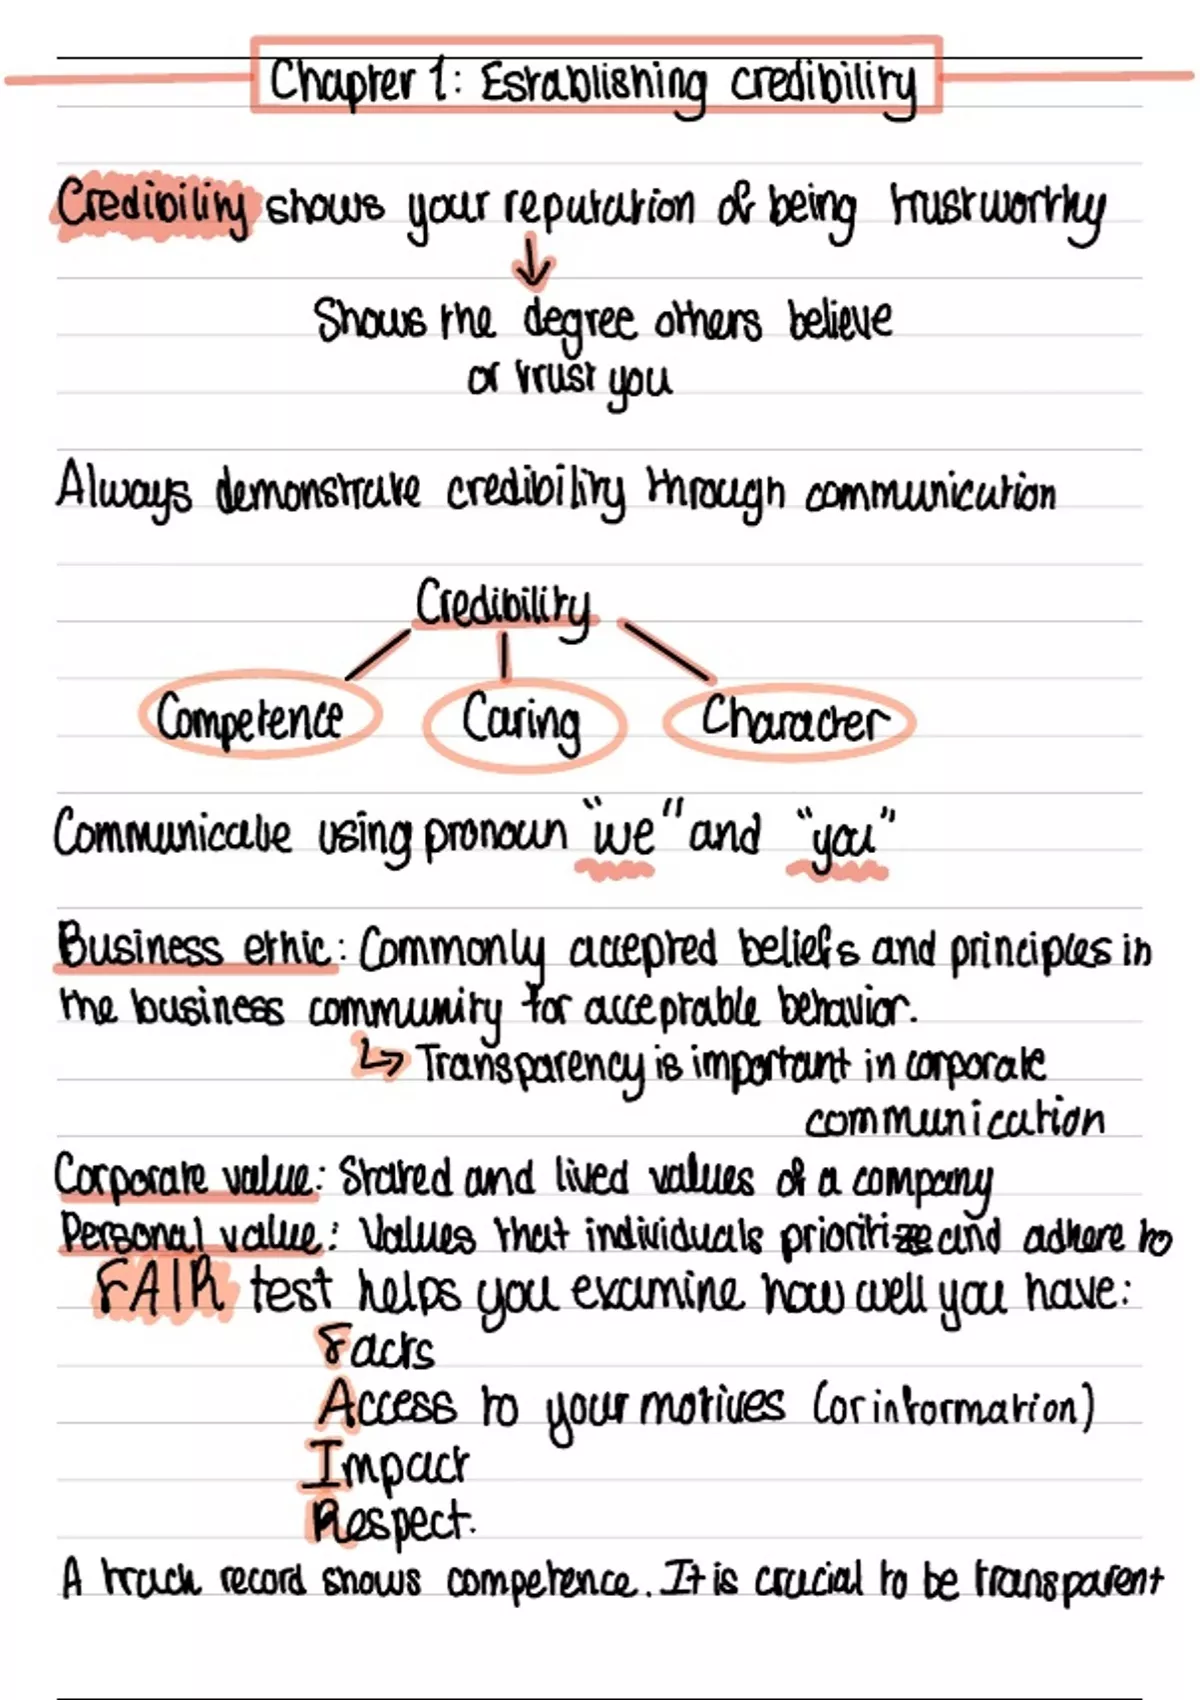 Chapter 1: Establishing credibility
Credibility shows your reputation of being trustworthy
Shows the degree others believe
or trust you
Always demonstrate credibility through communication
Credibility
Competence Caring Character
Communicate using pronoun "we" and "you"
Business ethic: Commonly accepted beliefs and principles in
the business community for acceptable behavior.
↳ Transparency is important in corporate
communication
Corporate value: Shared and lived values of a company
Personal value: Values that individuals prioritize and adhere to
FAIR test helps you examine how well you have:
Facts
Access to your motives (or information)
Impact
Respect.
A track record shows competence. It is crucial to be transparent